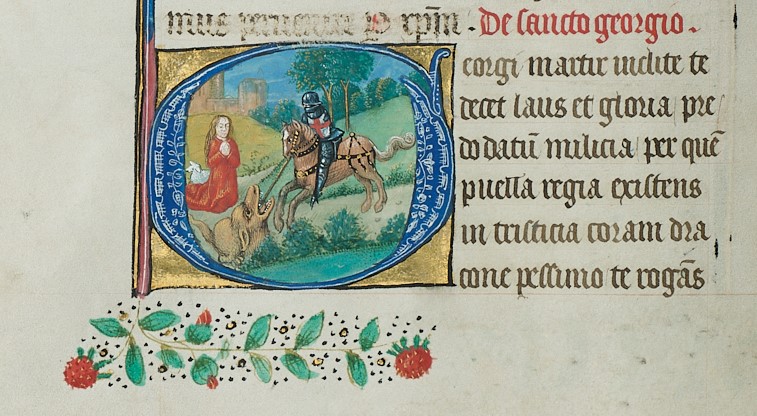 mus peruenire P xp̄m · De sancto georgio ·
Georgi martir inclite te
decet laus et gloria pre
dodatū milicia per quē
puella regia existens
in tristicia coram dra
cone pessimo te rogās